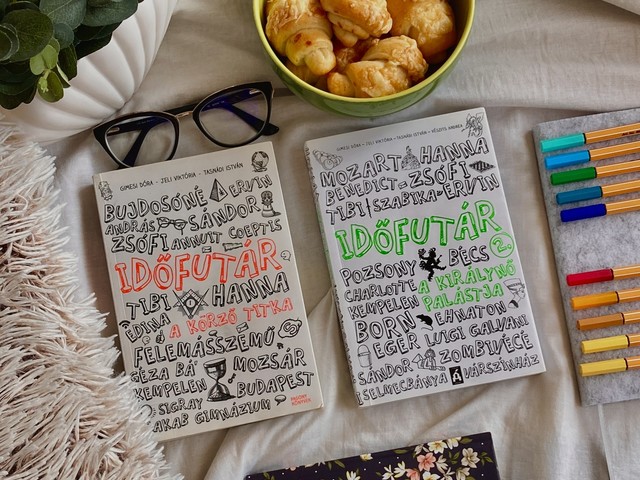 GIMESI DÓRA • JELI VIKTÓRIA • TASNÁDI ISTVÁN
BUJDOSÓNÉ ERVIN
ANDRÁS SÁNDOR
ZSÓFI ANNUIT COEPTIS
IDŐFUTÁR
TIBI HANNA
EDINA A KÖRZŐ TITKA
FELEMÁSSZEMŰ
GÉZA BÁ' MOZSÁR
KEMPELEN BUDAPEST
SIGRAY
JAKAB GIMNÁZIUM
PAGONY
KÖNYVEK
GIMESI DÓRA • JELI VIKTÓRIA • TASNÁDI ISTVÁN • VÉSZITS ANDREA
MOZART HANNA
BENEDICT ZSÓFI
TIBI SZABIKA ERVIN
IDŐFUTÁR
2.
POZSONY BÉCS
CHARLOTTE A KIRÁLYNŐ
KEMPELEN PALÁSTJA
BORN EHNATON
EGÉR LUIGI GALVANI
SÁNDOR ZOMBIVÉCÉ
SELMECBÁNYA VÁRSZÍNHÁZ